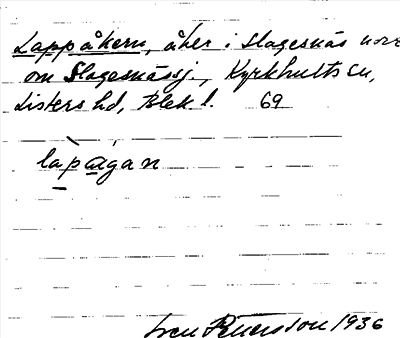 Lappåkern, åker i Slagesnäs norr
om Slagesnässj., Kyrkhults sn,
Listers hd, Blek. l. 69
lapågan
Sven Petersson 1936